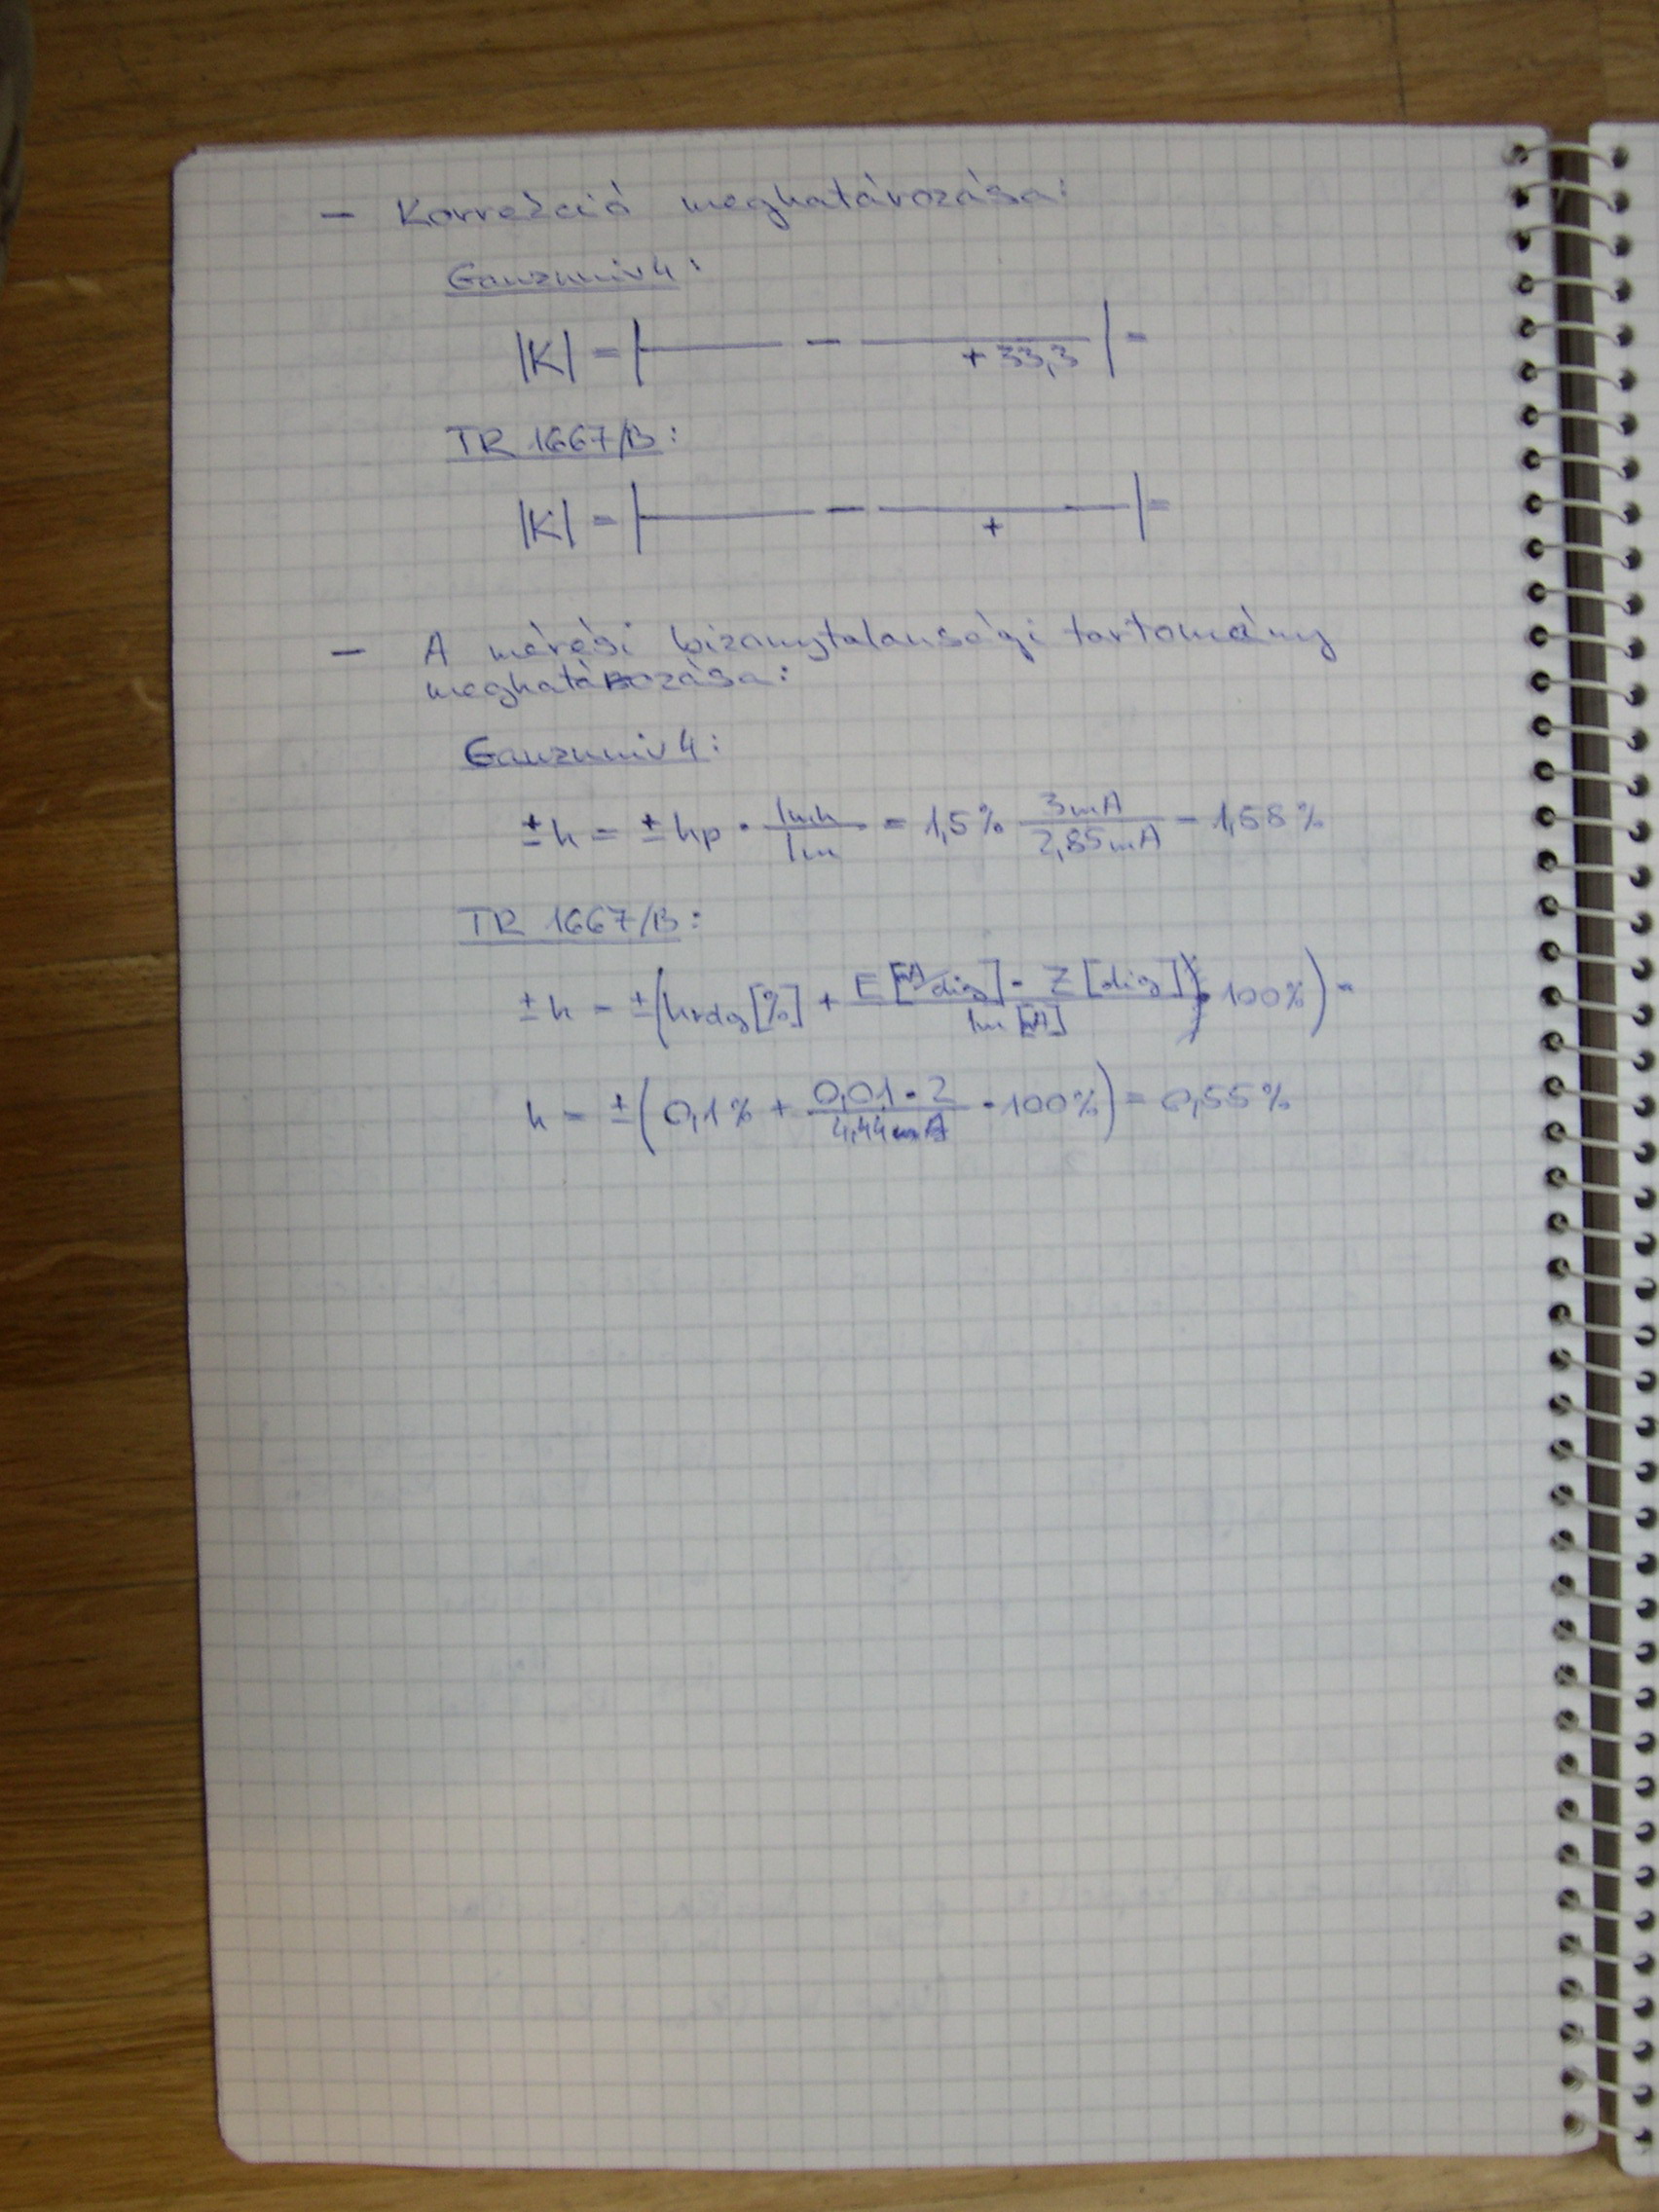 - Korrekció meghatározása:
Ganzuniv 4:
|K| = |——— - ——— + 33,3| =
TR 1667/B:
|K| = |——— - ——— +| =
- A mérési bizonytalansági tartomány
meghatározása:
Ganzuniv 4:
±h = ±hp · Imh / Im = 1,5% 3mA / 2,85mA = 1,58%
TR 1667/B:
±h = ±(hrdg[%] + E[A/dig] · Z[dig] / Im[A] · 100%) =
h = ±(0,1% + 0,01 · 2 / 4,44mA · 100%) = 0,55%